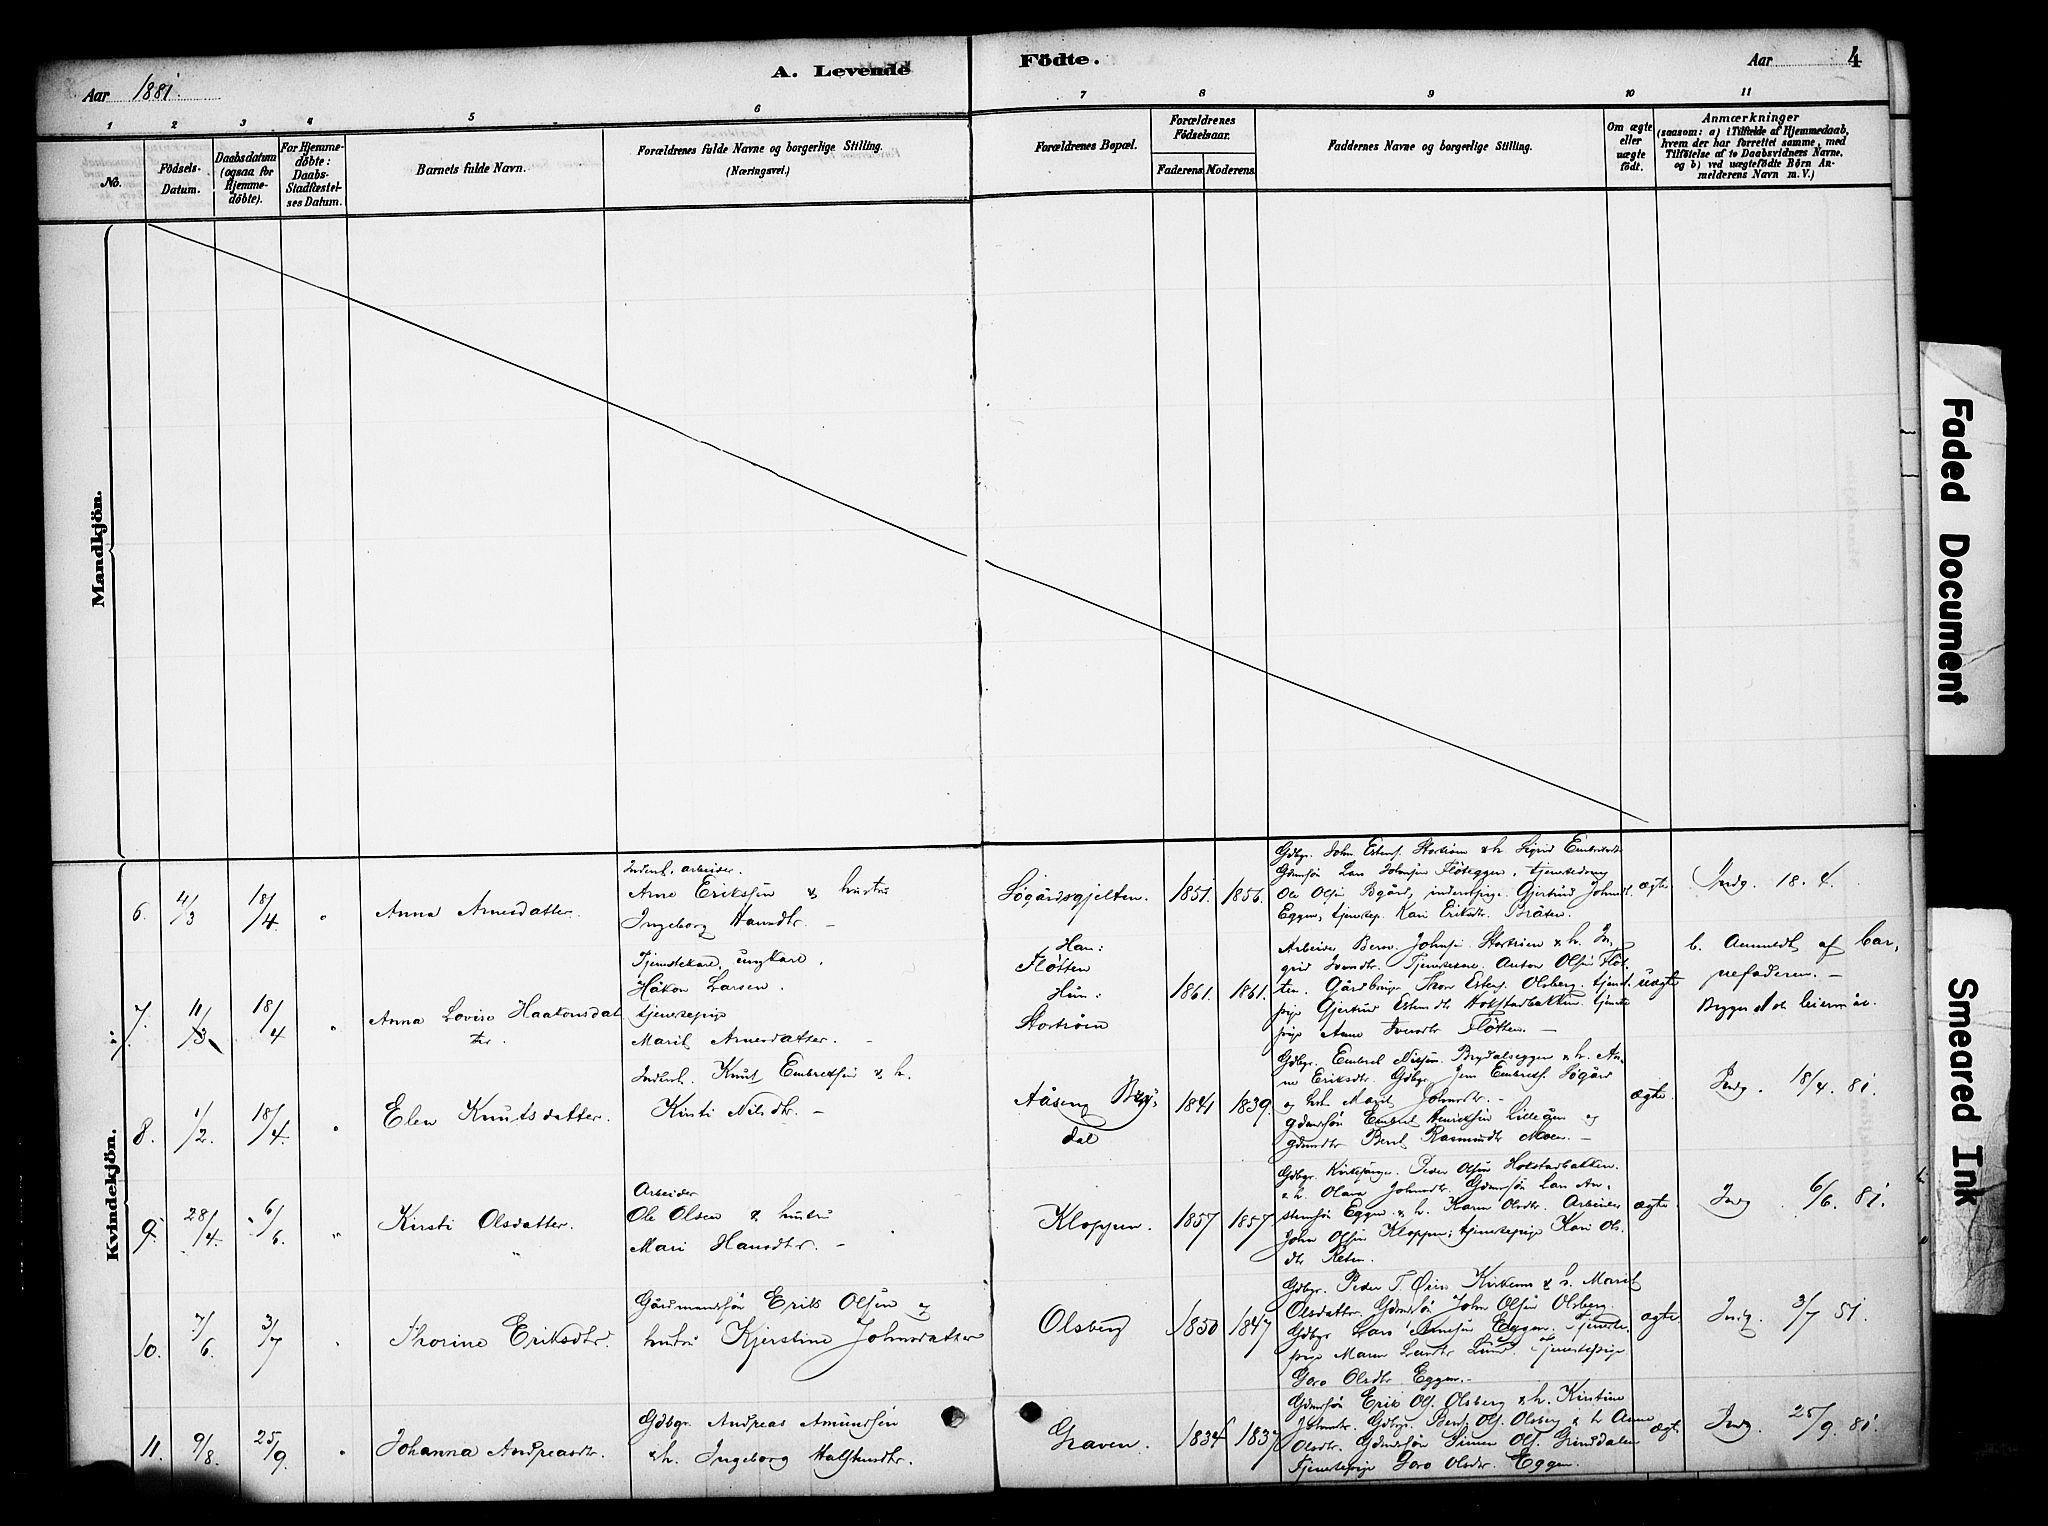 A. Levende Födte.
Aar 1881.
Aar 4
1 2 3 4 5 6 7 8 9 10 11
No.
Födsels-
Datum.
Daabsdatum
(ogsaa for
Hjemme-
døbte).
For Hjemme-
døbte:
Daabs-
Stadfæstel-
ses Datum.
Barnets fulde Navn.
Forældrenes fulde Navne og borgerlige Stilling.
(Næringsvei.)
Forældrenes Bopæl.
Forældrenes
Födselsaar.
Faderens Moderens
Faddernes Navne og borgerlige Stilling.
Om ægte
eller
uægte
født.
Anmærkninger
(saasom: a) i Tilfælde af Hjemmedaab,
hvem der har forrettet samme, med
Tilföielse af to Daabsvidners Navne,
og b) ved uægtefödte Börn An-
melderens Navn m. V.)
Mandkjön.
Kvindekjön.
6. 4/3 18/4. "
Anna Arnesdatter.
Inderst. arbeider.
Arne Eriksen & hustru
Ingeborg Hansdtr. -
Søgårdsgjelten.
1851. 1856.
Gdbgr. John Estens. Storsrøen & h. Sigrid Embretsdtr
Gdmsøn Lars Johnsen Fløteggen, tjenestedreng
Ole Olsen Søgård, inderstpige Gjertrud Johnsd.
Eggen, tjenestep. Kari Eriksdr. Bråten.
ægte
Indg. 18. 4.
7. 11/3 18/4 "
Anna Lovise Haakonsdat
ter.
Tjenestekarl, ungkarl,
Håkon Larsen.
tjenestepige
Marit Arnesdatter. -
Han:
Fløtten
Hun:
Storsrøen
1861. 1861.
Arbeider Bersv. Johnsen Storsrøen & h. In
grid Iversdtr. Tjenestekarl Anton Olsen Fløt-
ten. Gårdbruger Thore Estens. Olsberg, tjenst.
pige Gjertrud Estensdtr Hokstadbakken tjeneste
pige Anne Iversdtr Fløtten. -
uægte
b. Anmeldt af bar-
nefaderen. -
8. 1/2. 18/4. "
Elen Knutsdatter.
Inderst. Knut Embretsen & h.
Kirsti Nilsdtr. -
Aåsen, Bry-
dal
1841 1839.
Gdbgr. Embret Nilsen Brydalseggen & h. An-
ne Eriksdtr. Gdbgr. Jens Embretsf. Søgård
og hst. Marit Johnsdtr. -
gdmsøn Embret Henriksen Lilleåm og
gdmsdtr Beret Rasmusdtr Moen. -
ægte.
Indg 18/4. 81.
9. 28/4. 6/6. "
Kirsti Olsdatter.
Arbeider
Ole Olsen & hustru
Mari Hansdtr. -
Kloppen.
1857 1857
Gdbgr. Kirkesanger Peder Olsen Hokstadbakken
& h. Olava Johnsdtr. Gdmsøn Lars Ar-
stensøn Eggen & h. Karen Olsdtr. Arbeider
John Olsen Kloppen, tjenestepige Kari Ols-
dtr Reten.
ægte
Indg. 6/6. 81.
10. 7/6. 3/7 "
Thorine Eriksdtr.
Gårdmandsøn Erik Olsen og
hustru Kjerstine Johnsdatter
Olsberg
1850 1847
Gdbgr. Peder T. Øien Kirkemo & h. Marit
Olsdatter. Gdmsøn John Olsen Olsberg.
Gdbgr Lars Arnesen Eggen. Tjeneste-
pige Maren Larsdtr Lund. Tjenestepige
Goro Olsdtr Eggen. -
ægte
Indg. 3/7 81.
11. 9/8. 25/9. "
Johanna Andreasdtr.
Gdbgr. Andreas Amundsen
& h. Ingeborg Halstensdtr.
Graven.
1834 1837
Gdmsøn Erik Ols. Olsberg & h. Kirstine
Johnsdtr. Gdbgr. Bent Ols. Olsberg & h Anne
Olsdtr. Gdmsøn Simen Ols. Grinddalen
Tjenestepige Goro Olsdtr. Eggen.
ægte
Indg. 25/9. 81
Faded Document
Smeared Ink